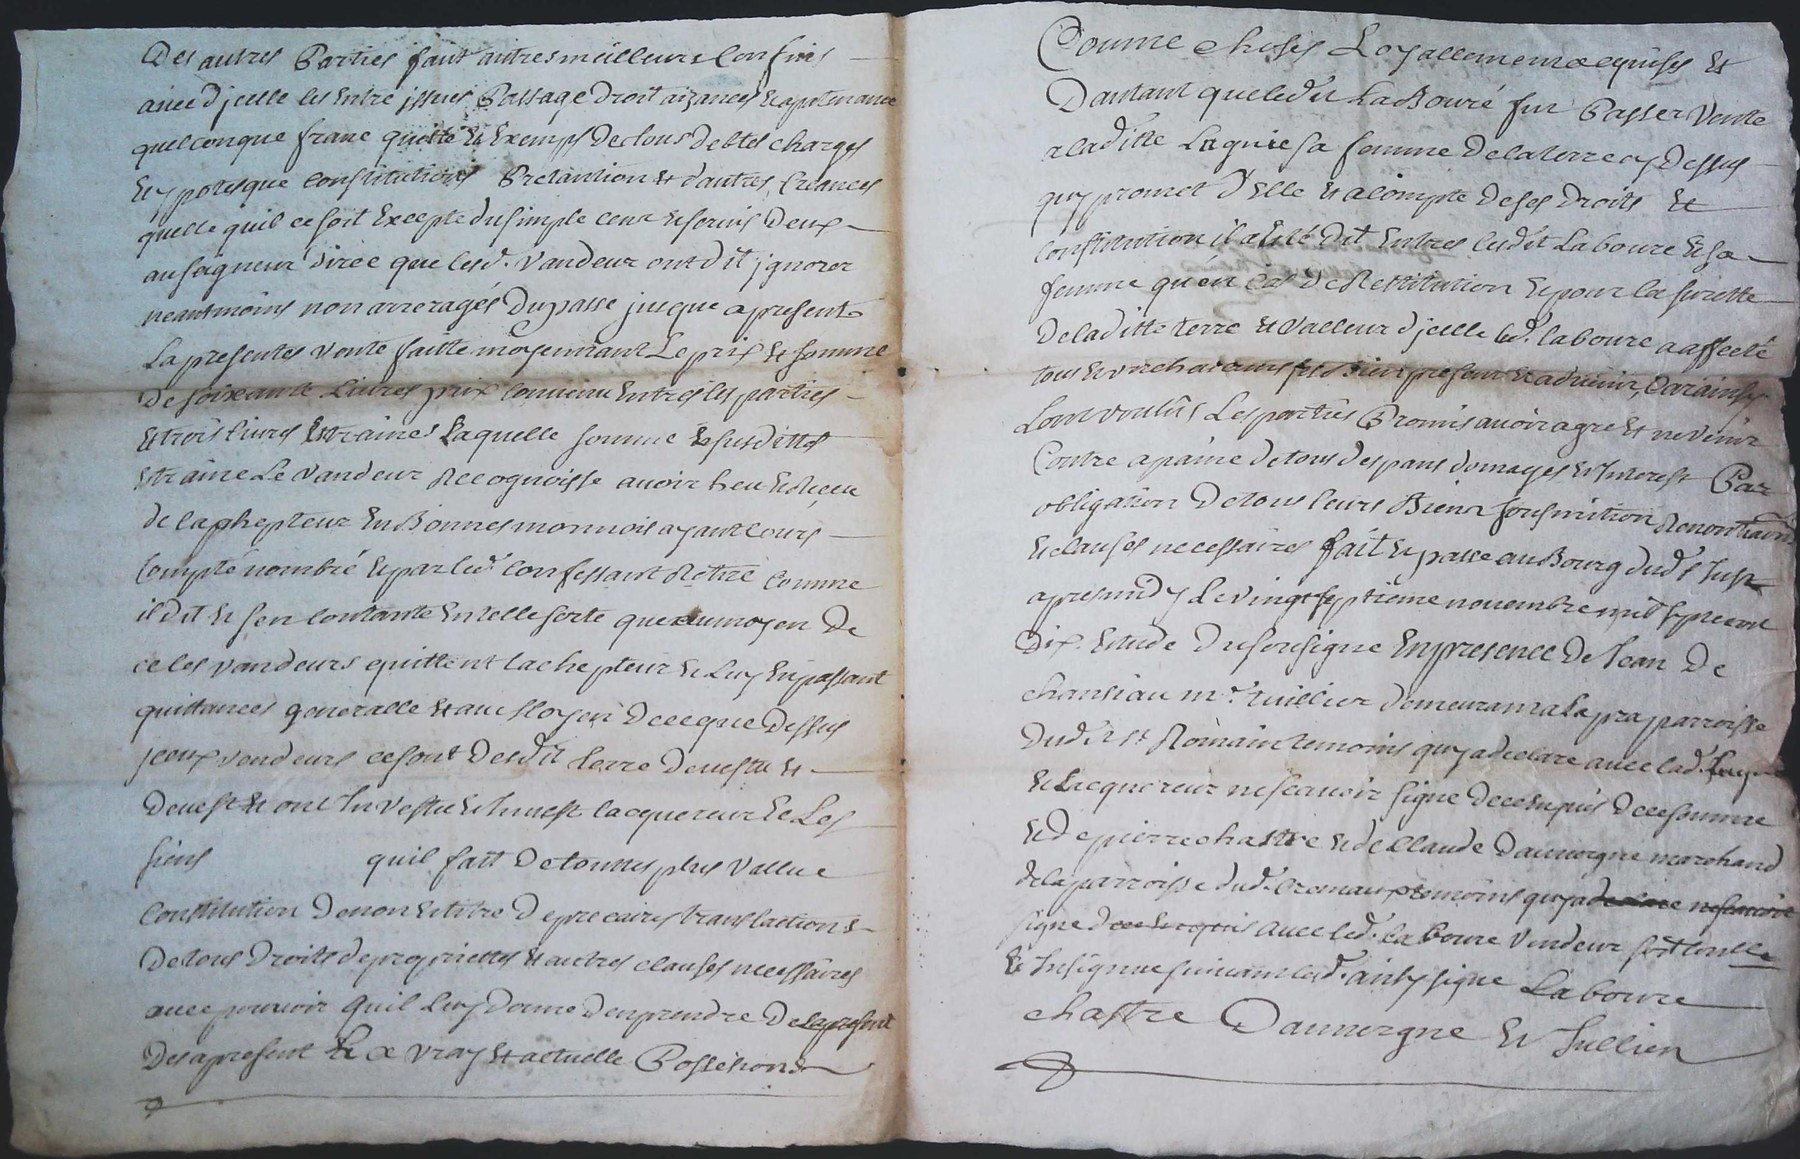 Des autres Parties sauf autres meilleurs Confins
avec d'jcelle les Entré jssues Passage Droit aizances & apartenances
quelconque franc quitte & Exemps De tous debtes charges
Et ypoteque Constitutions Pretantion & d'autres Creances
quelle quil ce soit Excepte du simple Cens & servis Deux
au seigneur Direc que lesd. Vandeur ont dit jgnorer
neantmoins non arreragés Du passe jusque a present
La presentes vente faitte moyennant Le prix & somme
De soixante Livres prix Convenu Entres les parties
& trois livres Estraines Laquelle somme & susdittes
Etraine Le Vandeur Recognoisse avoir heu & Receu
de lachepteur En Bonnes monnois ayant Cours
Compté nombré & par led. Confessant Rêtre Comme
il dit & s'en Contante En telle sorte que au moyen De
ce les vandeurs quittent lachepteur & Luy En passant
quittances generalle & au Moyen De ce que Dessus
jceux vendeurs ce sont De lad. terre Devestu &
Devest & ont Investu & Invest lacquereur & Les
siens quil fait De touttes plus Vallue
Constitution De nom & titre De precaires translactions
De tous Droits de proprietté & autres clauses necessaires
avec pouvoir quil Luy Donne Den prendre De la present
Des a present La vray & actuelle Possession
Comme choses Loyallement acquises &
Dautant que led. LaBouré fut Passer Vente
a laditte sa femme De la terre cy Dessus
quy promet D'Elle & a Compte De ses Droits &
Constitution il a Esté Dit Entres lesdit Laboure & sa
femme qu'en Cas De Restitution & pour la surette
De laditte terre & Valleur d'jcelle led. laboure a affecté
tous & un chacuns ses Bien present & advenir, Car ainsy
Lont voulus Les parties Promis avoir agre & ne venir
Contre a paine De tous despans domages & Interest Par
obligation De tous leurs Biens sousmition Renontiation
& clauses necessaires fait & passe au Bourg dud. St Just
apres midy Le vingt septième novembre mil sept cent
Dix Etude Du sousigne En presence De Jean De
chansiau mr. tuillier Demeurant a La pra parroisse
Dudit St Romain temoins quy a declare avec lad.
& Lacquereur ne scavoir signe De ce Enquis De ce somme
& De pierre chastre & de Claude Dauvergne marchand
De la parroisse dud. temoins quy a declare ne scavoir
signe De ce Enquis avec led. laboure Vendeur soit Controlle
& Insignue suivant led. ainsy signe Laboure
chastre Dauvergne & Jullien